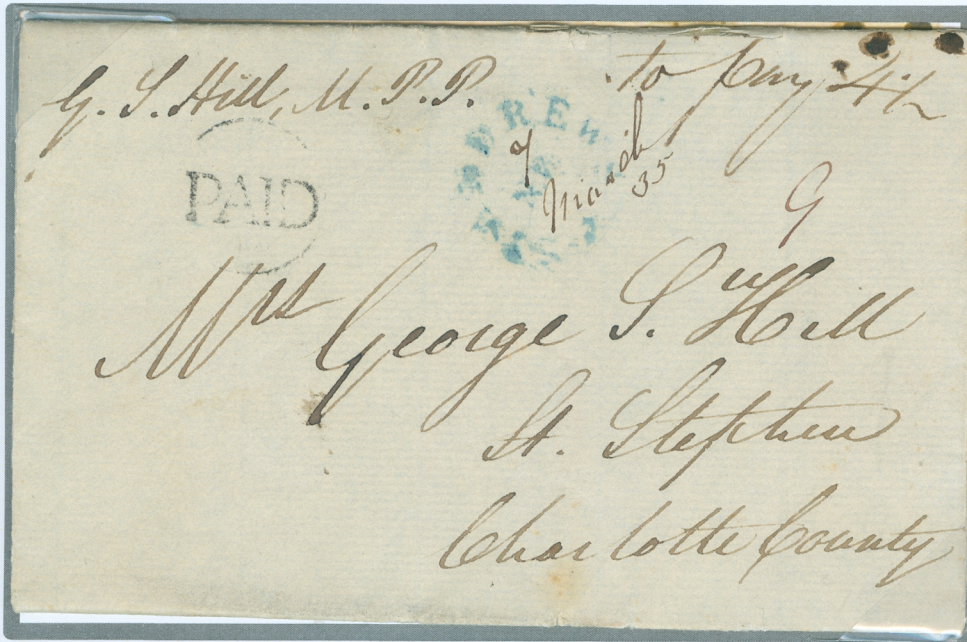 G. S. Hill, M.P.P. to pay 4½
PAID
DREW
7
March
35
9
Mrs George S. Hill
St. Stephen
Charlotte County